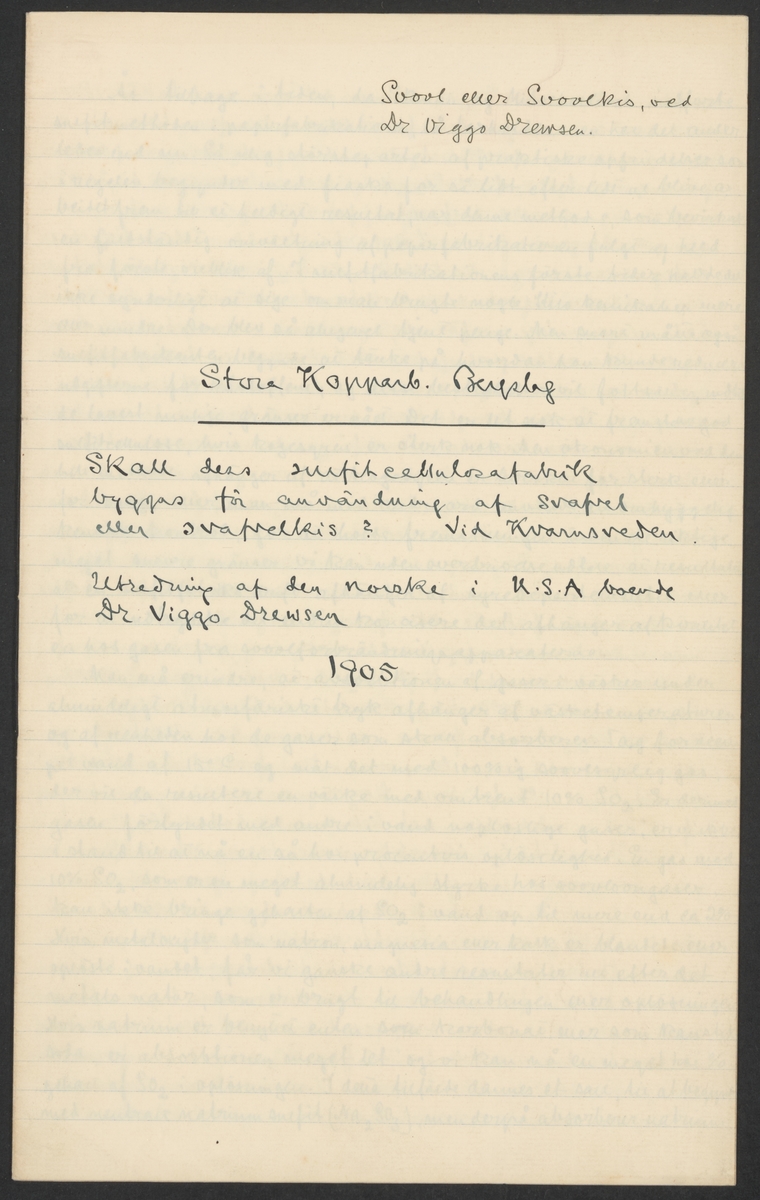 Svovl eller Svovlkis, ved
Dr Viggo Drewsen.
Stora Kopparb. Bergslag
Skall dess sulfitcellulosafabrik
byggas för användning af svafvel
eller svafvelkis? Vid Kvarnsveden.
Utredning af den norske i U.S.A boende
Dr Viggo Drewsen
1905